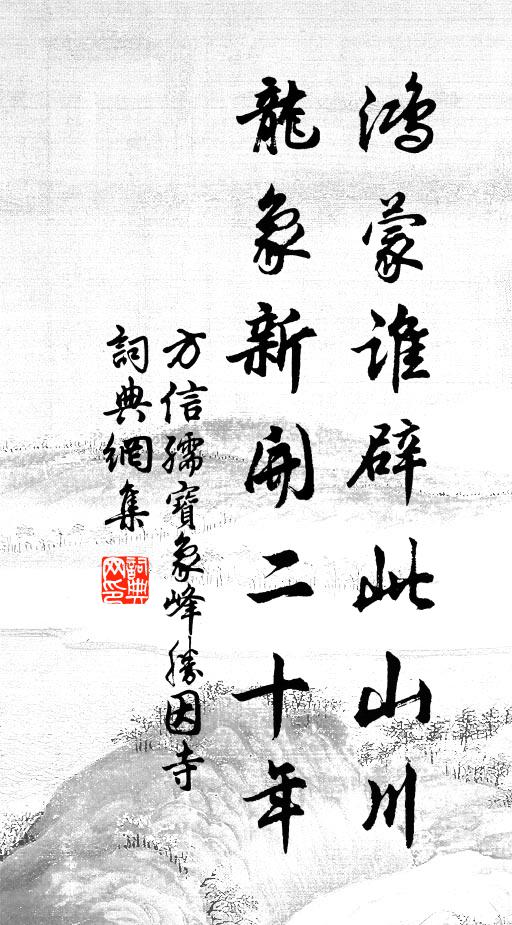 鴻蒙誰辟此山川
龍象新開二十年
方信孺寶象峰勝因寺
詞典網集
詞典网印